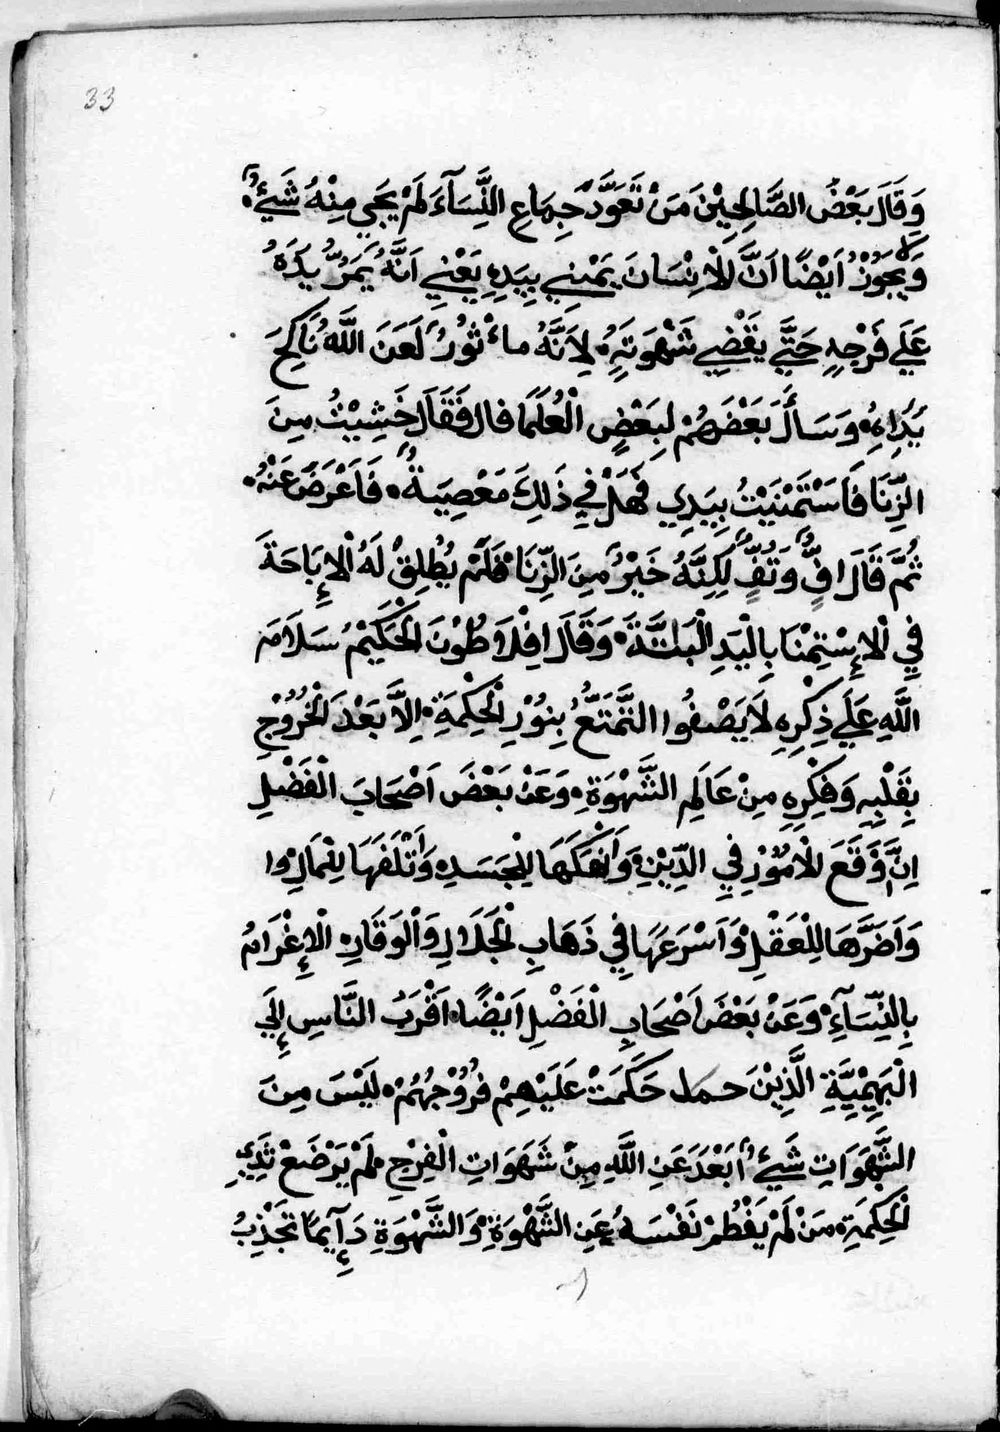 33
وَقَالَ بَعْضُ الصَّالِحِيْنَ مَنْ تَعَوَّدَ جِمَاعِ النِّسَآءَ لَمْ يَجِي مِنْهُ شَيْءٌ.
وَيَجُوْزُ اَيْضًا اَنَّ لْلاِنْسَانَ يَمْنِي بِيَدِهِ يَعْنِي اَنَّهُ يَمَرُّ يَدَهُ
عَلَي فَرْجِهِ حَتَّي يَقْضِي شَهْوَتِهِ. لِاَنَّهُ ماءْثُورُ لَعَنَ اللَّهُ نَاكِحَ
يَدَاهُ. وَسَأَلَ بَعْضَهُمْ لِبَعْضِ الْعُلَمَا فال فَقَالَ خَشِيْتُ مِنَ
الزِّنَا فَاَسْتَمْنَيْتُ بِيَدِي فَهَلْ فِي ذَلِكَ مَعْصِيَةٌ. فَاَعْرَضَ عَنْهُ.
ثُمَّ قَالَ افٍّ وَتُفٍّ لَكِنَّهُ خَيْرٌ مِنَ الزِّنَا. فَلَمْ يُطْلِقُ لَهُ الْاِبَاحَةَ
فِي الْاِسْتِمْنَا بِالْيَدِ الْبَتَّةَ. وَقَالَ افِلَاطُوْنَ الْحَكَيْمُ سَلَامَ
اللَّهِ عَلَي ذِكْرِهِ لَا يَصْفُوا التَّمَتَّعُ بِنُوْرِ الْحِكْمَةِ. اِلاَّ بَعْدَ الْخُرُوْجِ
بِقَلْبِهِ وَفِكْرِهِ مِنْ عَالَمِ الشَّهْوَةِ. وَعَنْ بَعْضَ اَصْحَابَ الْفَضْلِ
اِنَّ وَقَعَ لْلاُمُوْرِ فِي الدِّيْنِ. وَاَنْهَكَهَا لِلْجَسَدِ. وَاَتْلَفَهَا لِلْمَالِ. وا
وَاَضَرَّهَا لِلْعَقْلِ. وَاَسْرَعَهَا فِي ذَهَابِ الْجَلَالِ وَالْوَقَارِ. الْاِغْرَامُ
بِالنِّسَآءِ. وَعَنْ بَعْضَ اَصْحَابِ الْفَضْلِ اَيْضًا. اَقْرَبُ النَّاسِ اِلَي
الْبَهِيْمِيَّةِ الَّذِيْنَ حمل حَكَمَتْ عَلَيْهِمْ فُرُوْجُهُمْ. لَيْسَ مِنَ
الشَّهَوَاتِ شَيْءُ اَبْعَدَ عَنِ اللَّهِ مِنْ شَهَوَاتِ الْفِرْجِ. لَمْ يَرْضَعْ ثَدِيِ
الْحِكِمَةِ. مَنْ لَمْ يَفْطُمْ نَفْسَهُ عَنِ الشَّهْوَةِ. وَالشَّهْوَةِ دَآيِمًا تَجْذِبُ